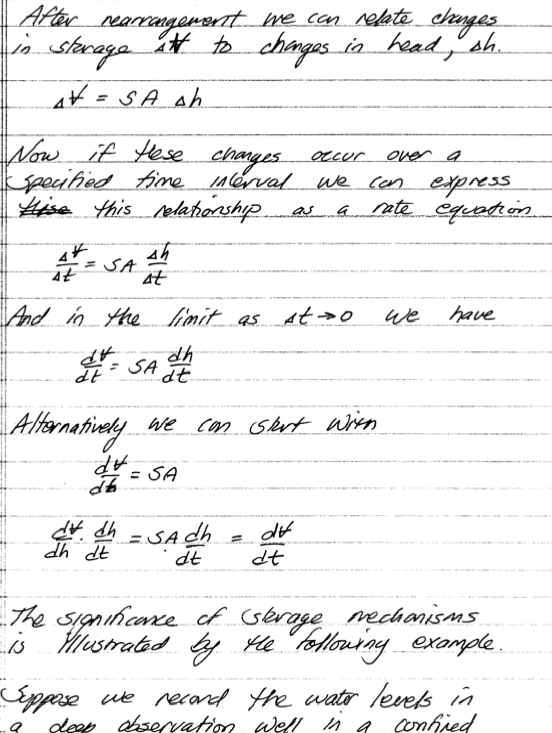 After rearrangement we can relate changes
in storage ΔV̶ to changes in head, Δh.
ΔV̶ = SA Δh
Now if these changes occur over a
specified time interval we can express
this relationship as a rate equation
ΔV̶/Δt = SA Δh/Δt
And in the limit as Δt→0 we have
dV̶/dt = SA dh/dt
Alternatively we can start with
dV̶/dh = SA
dV̶/dh · dh/dt = SA dh/dt = dV̶/dt
The significance of storage mechanisms
is illustrated by the following example.
Suppose we record the water levels in
a deep observation well in a confined